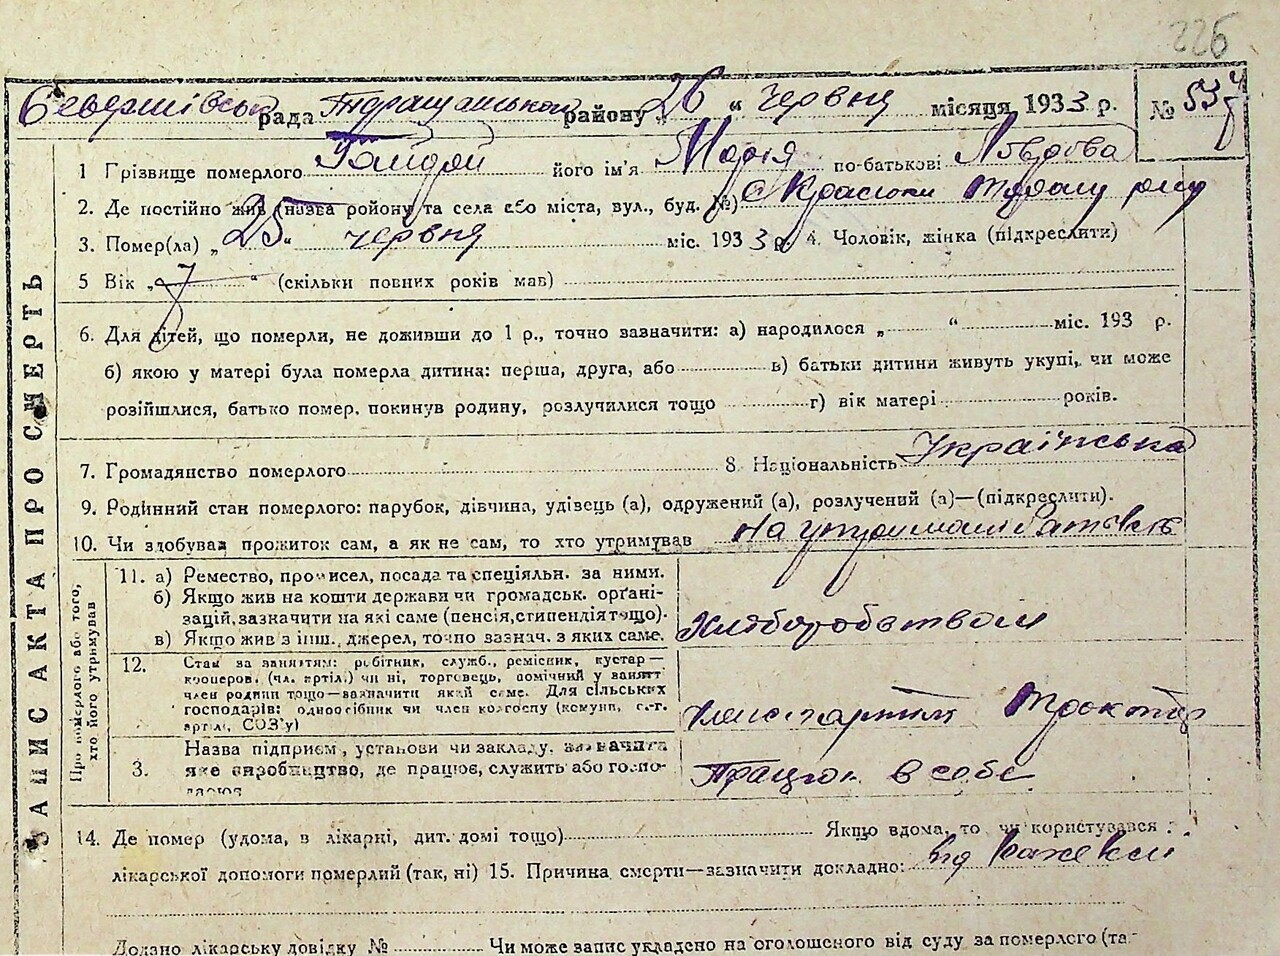 226
рада Таращанської району „26 " червня місяця 1933 р. № 534
1 Грізвище померлого Гайдай його ім'я Марія по-батькові
2. Де постійно жив (назва району та села або міста, вул., буд. №) с Красюки Таращ р-ну
3. Помер(ла) „25" червня міс. 1933 р. 4. Чоловік, жінка (підкреслити)
5 Вік „7" (скільки повних років мав)
6. Для дітей, що померли, не доживши до 1 р., точно зазначити: а) народилося „ " міс. 193 р.
б) якою у матері була померла дитина: перша, друга, або в) батьки дитини живуть укупі, чи може
розійшлися, батько помер, покинув родину, розлучилися тощо г) вік матері років.
7. Громадянство померлого 8. Національність Українська
9. Родинний стан померлого: парубок, дівчина, удівець (а), одружений (а), розлучений (а)—(підкреслити).
10. Чи здобував прожиток сам, а як не сам, то хто утримував На утриманні батьків
ЗАПИС АКТА ПРО СМЕРТЬ
Про померлого або того, хто його утримував
11. а) Ремество, промисел, посада та спеціяльн. за ними.
б) Якщо жив на кошти держави чи громадськ. органі-
зацій, зазначити на які саме (пенсія, стипендія тощо).
в) Якщо жив з інш. джерел, точно зазнач. з яких саме.
Хліборобством
12. Стан за заняттям: робітник, служб., ремісник, кустар—
кооперов. (чл. артілі) чи ні, торговець, помічний у занятт
член родини тощо—зазначити який саме. Для сільських
господарів: одноосібник чи член колгоспу (комуни, с.-г.
артілі, СОЗ'у)
Трактор
3. Назва підприєм, установи чи закладу, зазначити
яке виробництво, де працює, служить або госпо-
Працює в себе
14. Де помер (удома, в лікарні, дит. домі тощо) Якщо вдома, то чи користувався
лікарської допомоги померлий (так, ні) 15. Причина смерти—зазначити докладно: від кахексії
Додано лікарську довідку № Чи може запис укладено на оголошеного від суду за померлого (та